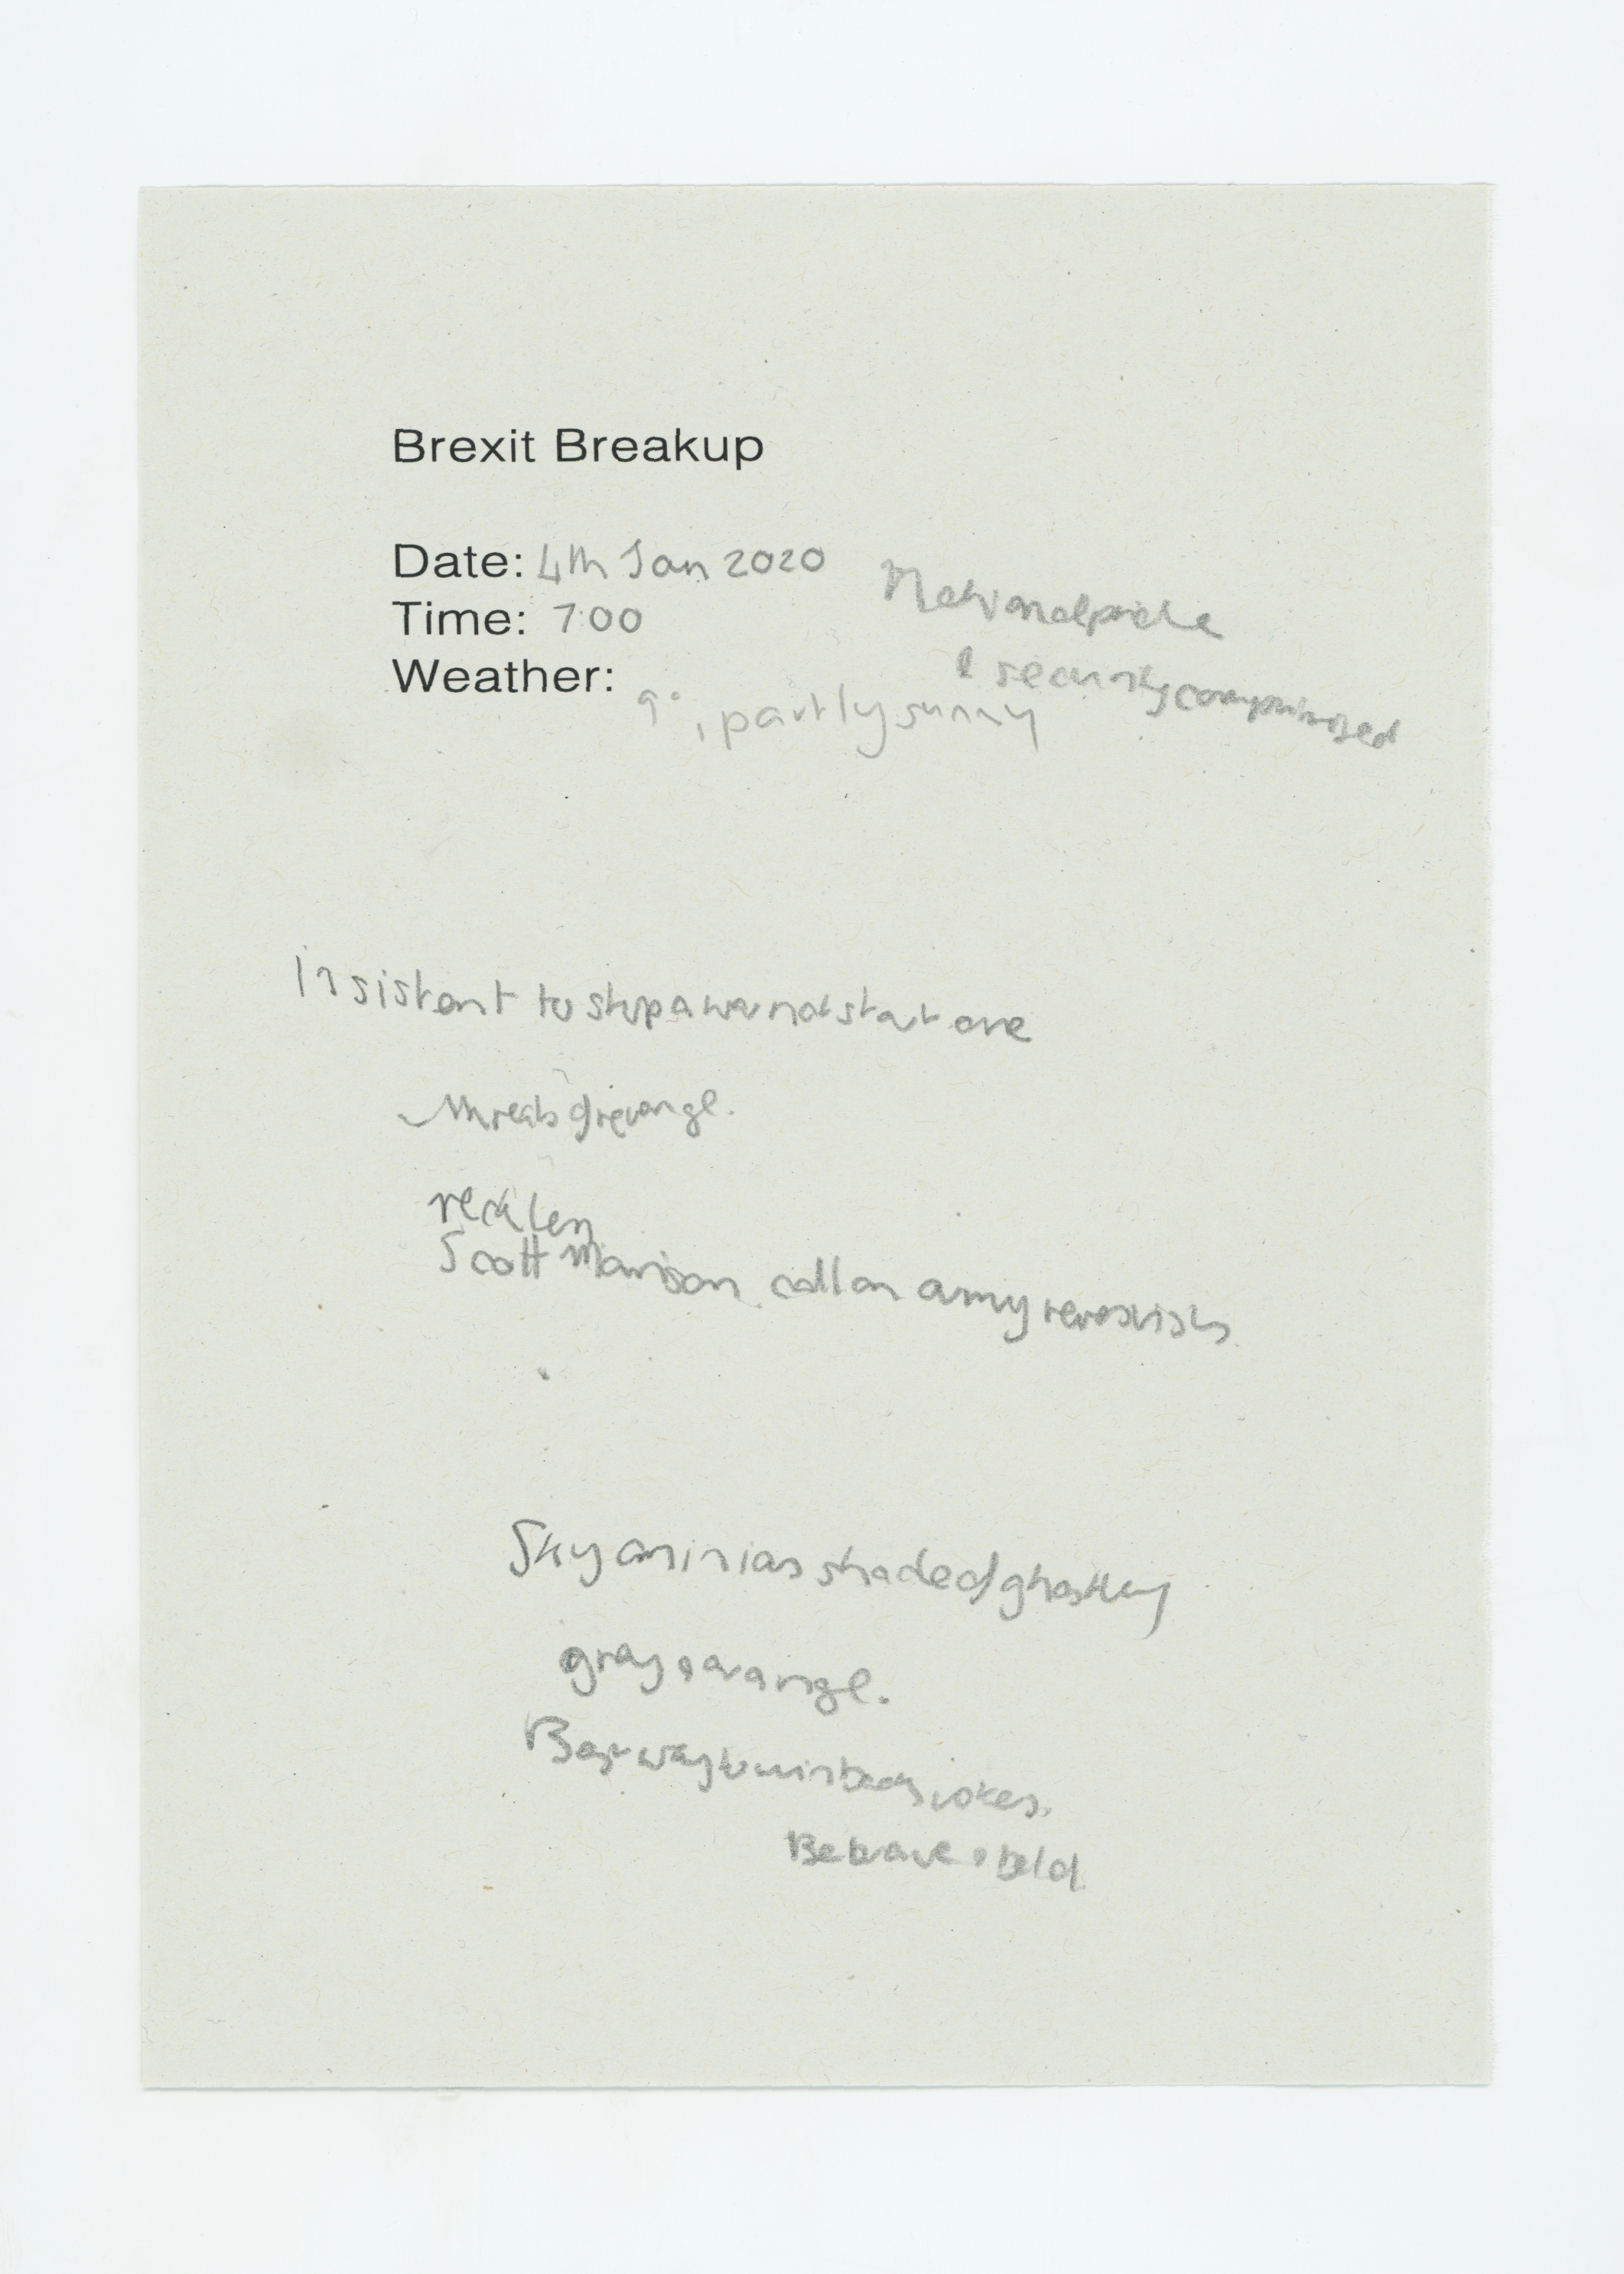 Brexit Breakup
Date: 4th Jan 2020
Time: 7:00
National pride
& security compromised
Weather: 9°, partly sunny
Insistent to stop a war not start one
threats of revenge.
reckless
Scott Morrison call on army reservists
Sky shaded ghostly
gray & orange.
Best way to win back jokes.
Be brave & bold